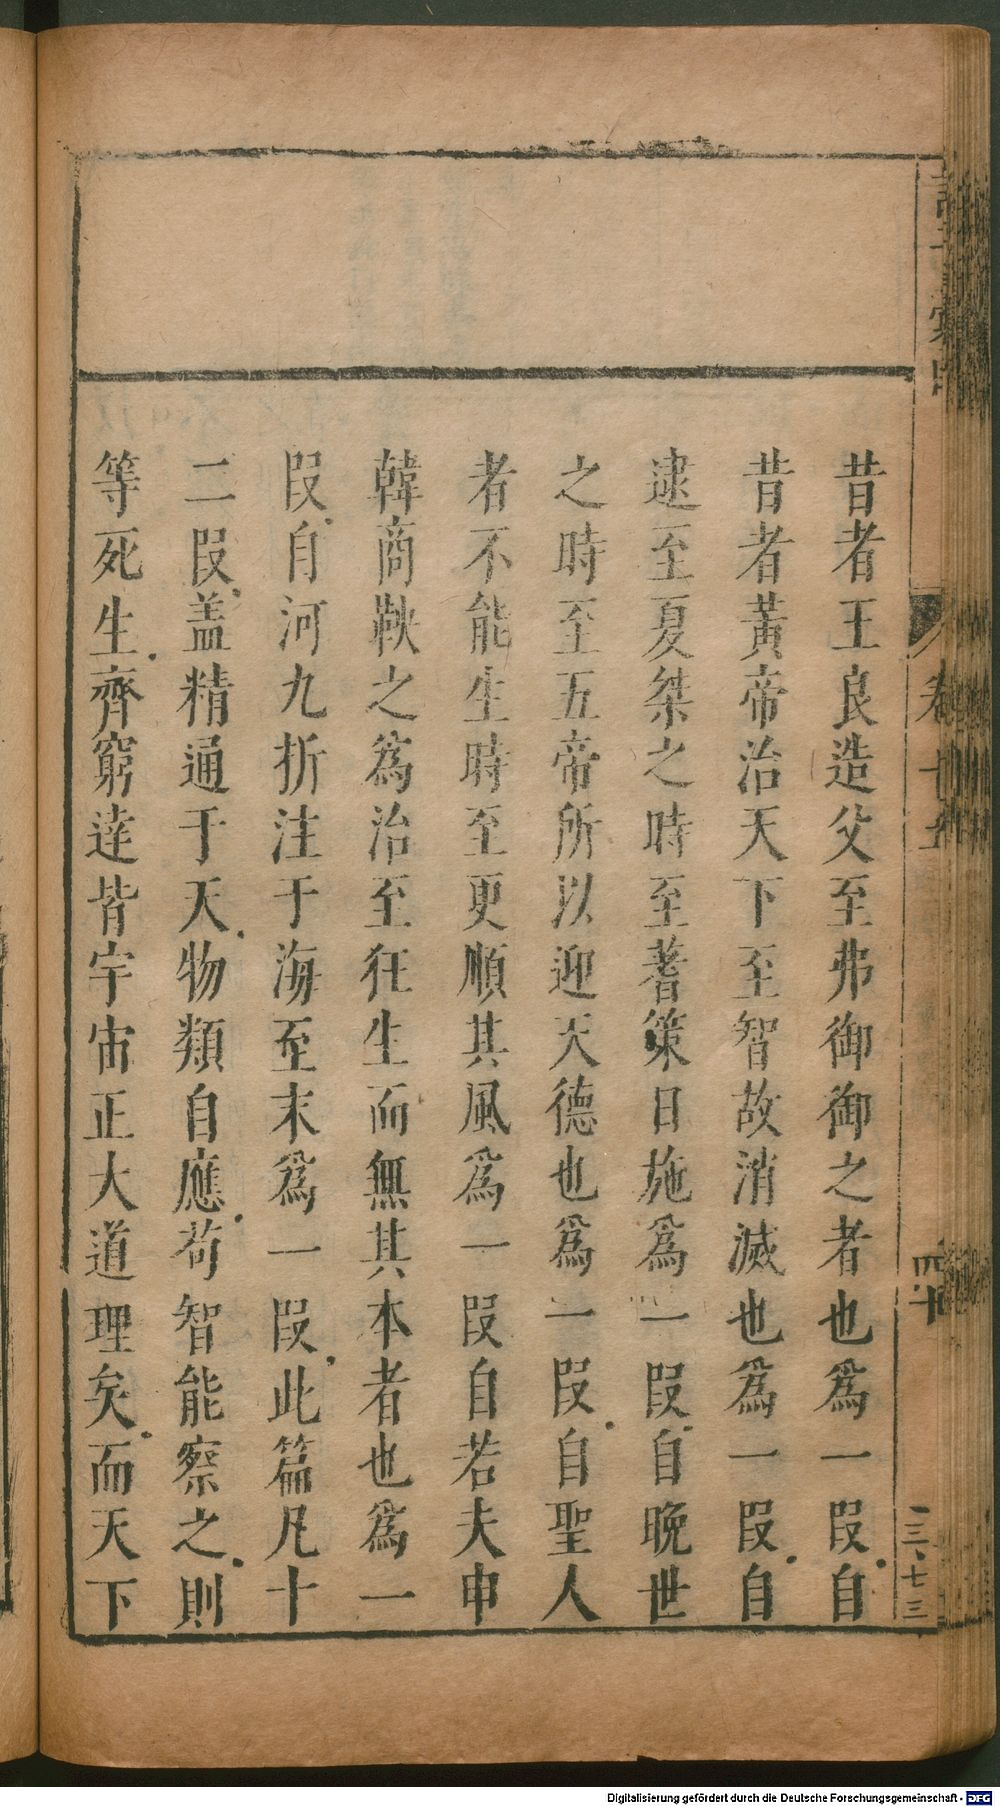 昔者王良造父至弗御御之者也爲一段自
昔者黃帝治天下至智故消滅也爲一段自
逮至夏桀之時至蓍策日施爲一段自晚世
之時至五帝所以迎天德也爲一段自聖人
者不能生時至更順其風爲一段自若夫申
韓商鞅之爲治至狂生而無其本者也爲一
段自河九折注于海至末爲一段此篇凡十
二段蓋精通于天物類自應苟智能察之則
等死生齊窮達皆宇宙正大道理矣而天下
卷十五
四十
三七三
Digitalisierung gefördert durch die Deutsche Forschungsgemeinschaft - DFG